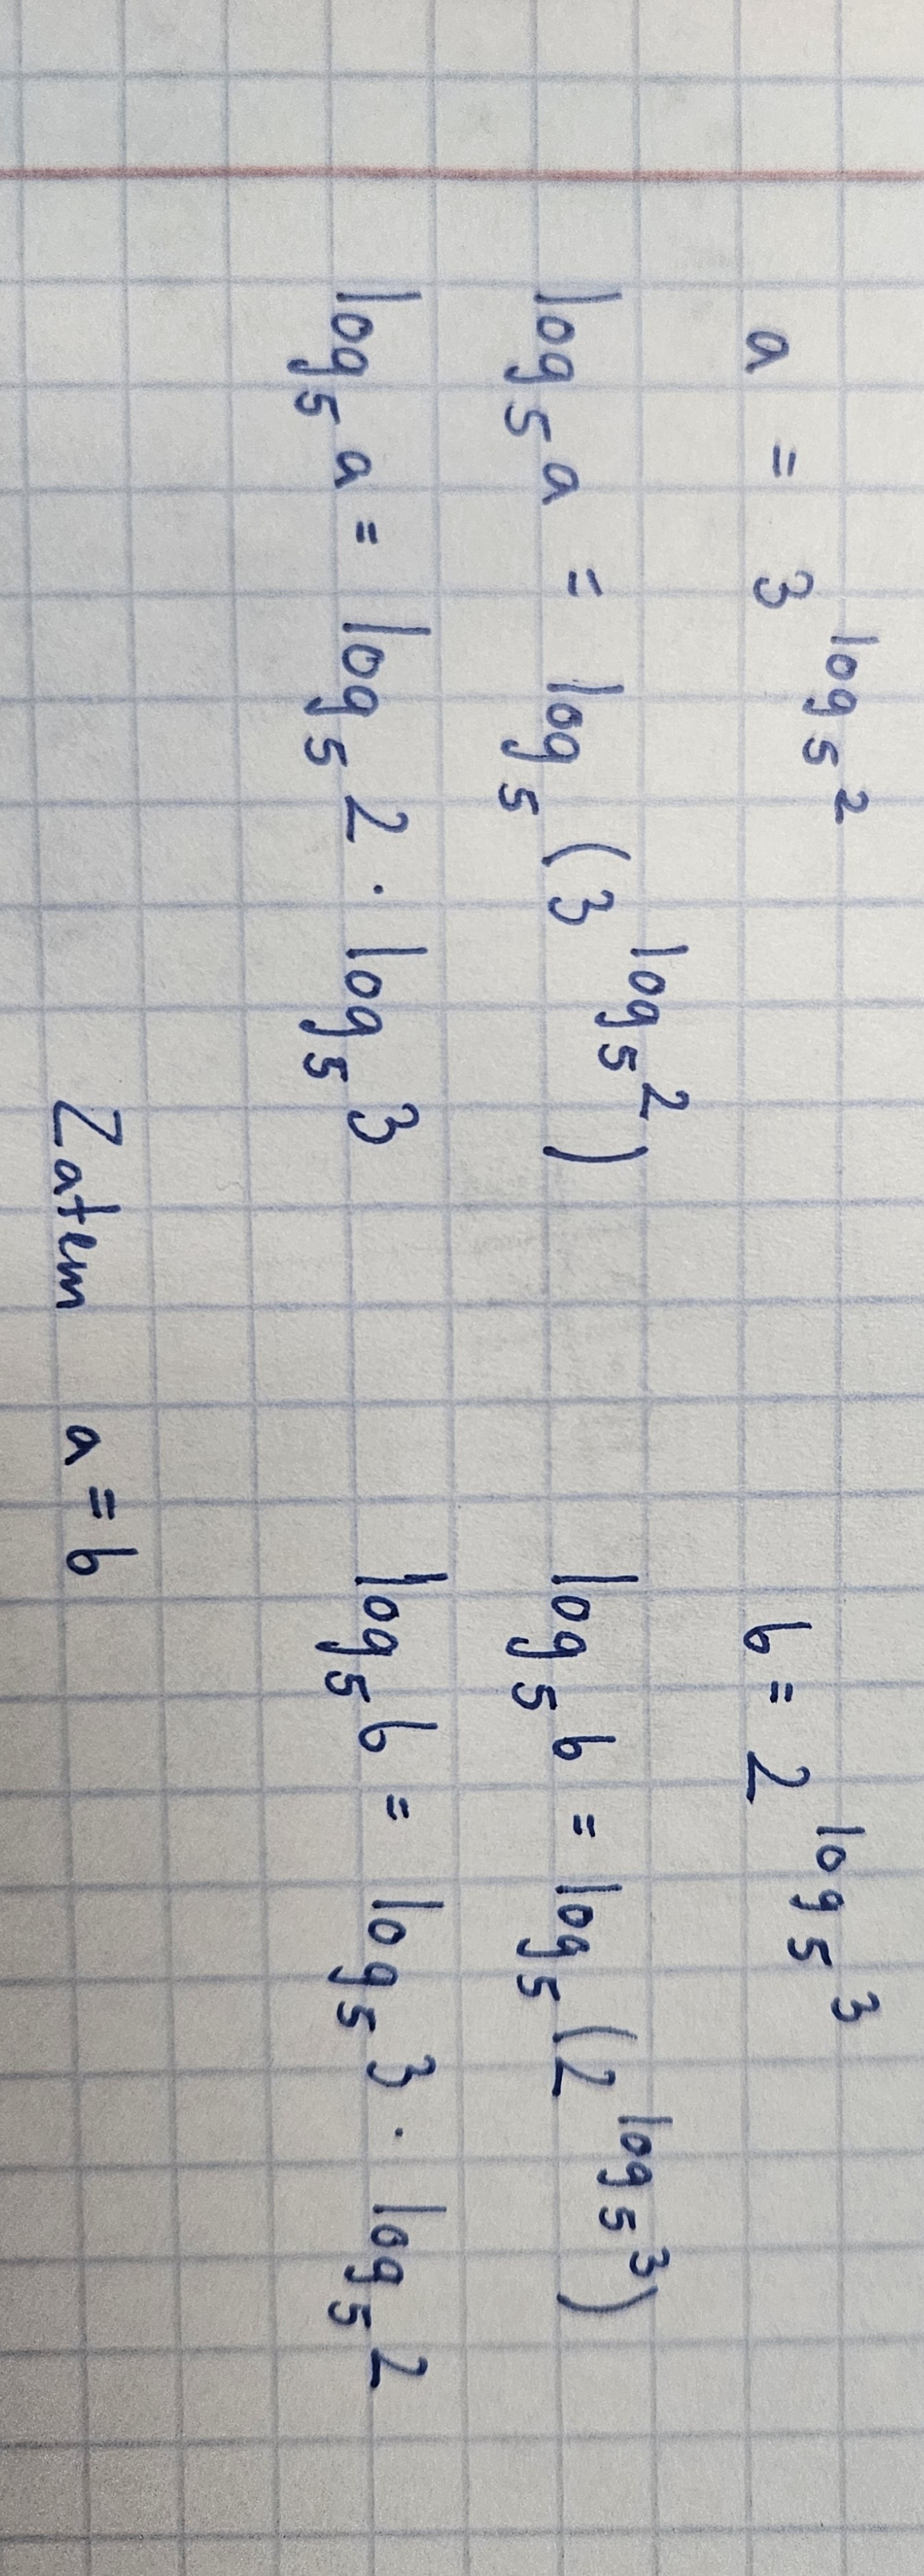 a = 3^{log_5 2}    b = 2^{log_5 3}
log_5 a = log_5 (3^{log_5 2})    log_5 b = log_5 (2^{log_5 3})
log_5 a = log_5 2 · log_5 3    log_5 b = log_5 3 · log_5 2
Zatem a = b